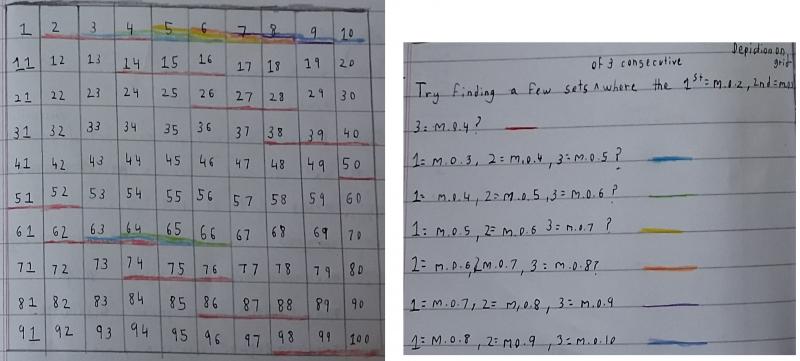 1 2 3 4 5 6 7 8 9 10
11 12 13 14 15 16 17 18 19 20
21 22 23 24 25 26 27 28 29 30
31 32 33 34 35 36 37 38 39 40
41 42 43 44 45 46 47 48 49 50
51 52 53 54 55 56 57 58 59 60
61 62 63 64 65 66 67 68 69 70
71 72 73 74 75 76 77 78 79 80
81 82 83 84 85 86 87 88 89 90
91 92 93 94 95 96 97 98 99 100
Depiction on grid
of 3 consecutive
Try finding a few sets ^ where the 1st = m.o.2, 2nd = m.o.3
3 = m.o.4?
1 = m.o.3, 2 = m.o.4, 3 = m.o.5?
1 = m.o.4, 2 = m.o.5, 3 = m.o.6?
1 = m.o.5, 2 = m.o.6 3 = m.o.7 ?
1 = m.o.6, 2 m.o.7, 3 = m.o.8?
1 = m.o.7, 2 = m.o.8, 3 = m.o.9
1 = m.o.8, 2 = m.o.9, 3 = m.o.10